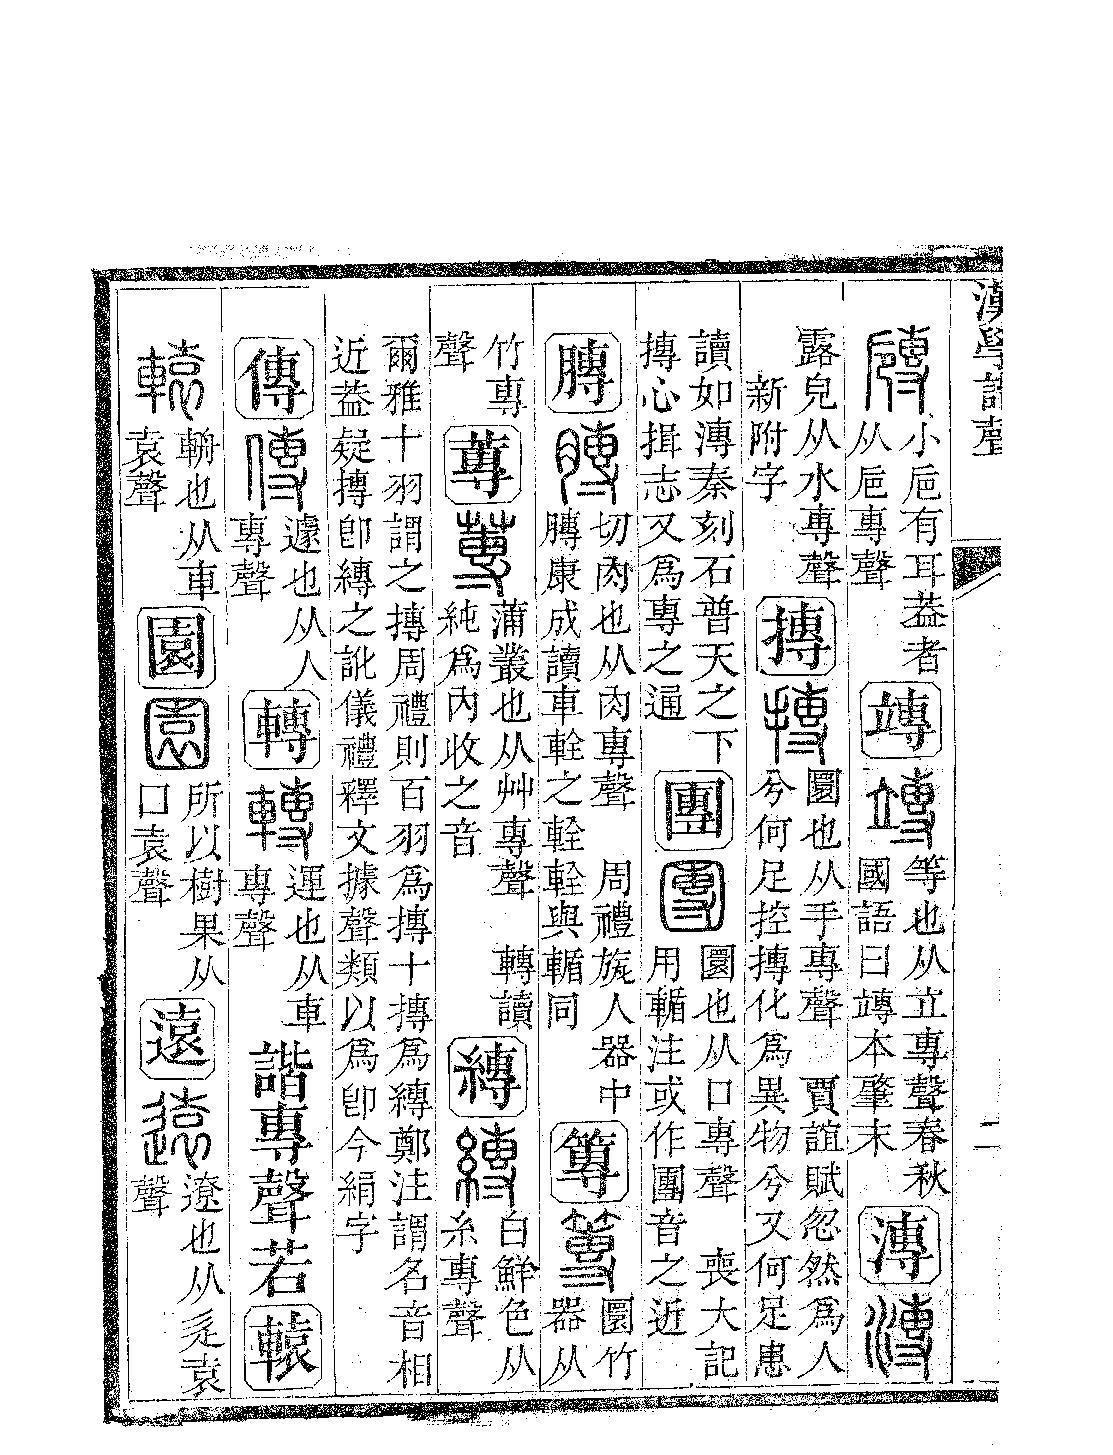 漢學諧聲
二
𡭐小巵有耳葢者
从巵專聲
竱竱等也从立專聲春秋
國語曰竱本肇末
漙漙
露皃从水專聲
新附字
摶摶圜也从手專聲 賈誼賦忽然為人
兮何足控摶化為異物兮又何足患
讀如漙秦刻石普天之下
摶心揖志又為專之通
團團圜也从囗專聲 喪大記
用輴注或作團音之近
膞膞切肉也从肉專聲 周禮瓬人器中
膞康成讀車輇之輇輇與輴同
篿篿圜竹
器从
竹專
聲
蓴蓴蒲叢也从艸專聲 轉讀
純為內收之音
縳縳白鮮色从
糸專聲
爾雅十羽謂之摶周禮則百羽為摶十摶為縳鄭注謂名音相
近葢疑摶卽縳之訛儀禮釋文據聲類以為卽今絹字
傳傳遽也从人
專聲
轉轉運也从車
專聲
諧專聲若轅
轅輈也从車
袁聲
園園所以樹果从
囗袁聲
遠遠遼也从辵袁
聲